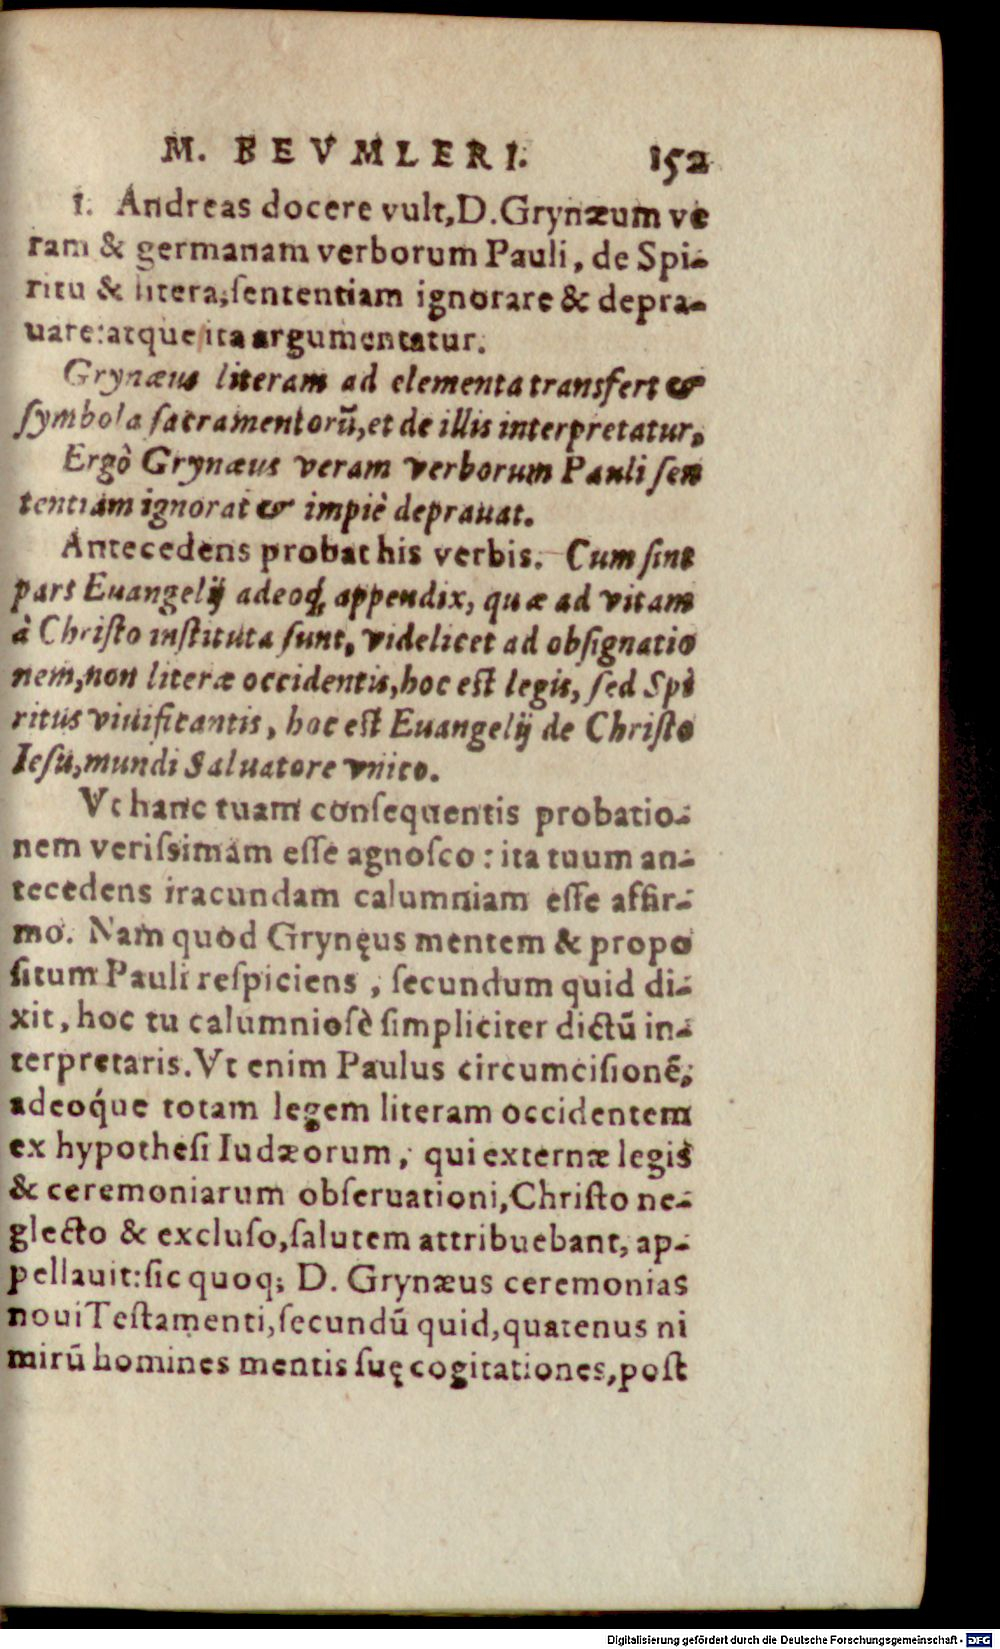 M. BEVMLERI. 152
1. Andreas docere vult, D. Grynæum ve
ram & germanam verborum Pauli, de Spi-
ritu & litera, ſententiam ignorare & depra-
uare: atque ita argumentatur.
Grynæus literam ad elementa transfert &
ſymbola ſacramentorũ, et de illis interpretatur,
Ergò Grynæus veram verborum Pauli ſen
tentiam ignorat & impiè deprauat.
Antecedens probat his verbis. Cum ſint
pars Euangelij adeoq́; appendix, quæ ad vitam
à Chriſto inſtituta ſunt, videlicet ad obſignatio
nem, non literæ occidentis, hoc eſt legis, ſed Spi
ritus viuificantis, hoc eſt Euangelij de Chriſto
Ieſu, mundi Saluatore vnico.
Vt hanc tuam conſequentis probatio-
nem veriſsimam eſſe agnoſco: ita tuum an-
tecedens iracundam calumniam eſſe affir-
mo. Nam quod Grynęus mentem & propo
ſitum Pauli reſpiciens, ſecundum quid di-
xit, hoc tu calumnioſè ſimpliciter dictũ in-
terpretaris. Vt enim Paulus circumciſionẽ,
adeoq́ue totam legem literam occidentem
ex hypotheſi Iudæorum, qui externæ legis
& ceremoniarum obſeruationi, Chriſto ne-
glecto & excluſo, ſalutem attribuebant, ap-
pellauit: ſic quoq; D. Grynæus ceremonias
noui Teſtamenti, ſecundũ quid, quatenus ni
mirũ homines mentis ſuę cogitationes, poſt
Digitalisierung gefördert durch die Deutsche Forschungsgemeinschaft - DFG